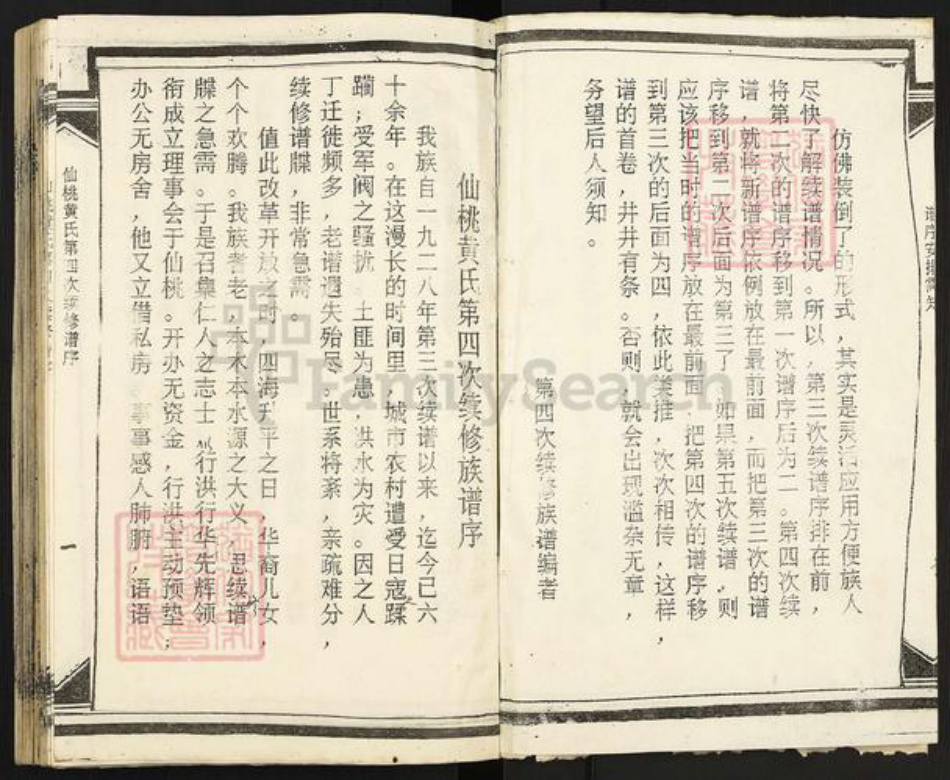 仿佛装倒了的形式，其实是灵活应用方便族人
尽快了解续谱情况。所以，第三次续谱序排在前，
将第二次的谱序移到第一次谱序后为二。第四次续
谱，就将新谱序依例放在最前面，而把第三次的谱
序移到第二次后面为第三了，如果第五次续谱，则
应该把当时的谱序放在最前面，把第四次的谱序移
到第三次的后面为四，依此类推，次次相传，这样，
谱的首卷，井井有条。否则，就会出现滥杂无章，
务望后人须知。
第四次续修族谱编者
仙桃黄氏第四次续修族谱序
我族自一九二八年第三次续谱以来，迄今已六
十余年。在这漫长的时间里，城市农村遭受日寇蹂
躏；受军阀之骚扰，土匪为患，洪水为灾。因之人
丁迁徙频多，老谱遗失殆尽。世系将紊，亲疏难分，
续修谱牒，非常急需。
值此改革开放之时，四海升平之日，华裔儿女，
个个欢腾。我族耆老，本木本水源之大义，思续谱
牒之急需。于是召集仁人之志士，以行洪行华先辉领
衔成立理事会于仙桃。开办无资金，行洪主动预垫；
办公无房舍，他又立借私房，事事感人肺腑，语语
仙桃黄氏第四次续修谱序
一
FamilySearch